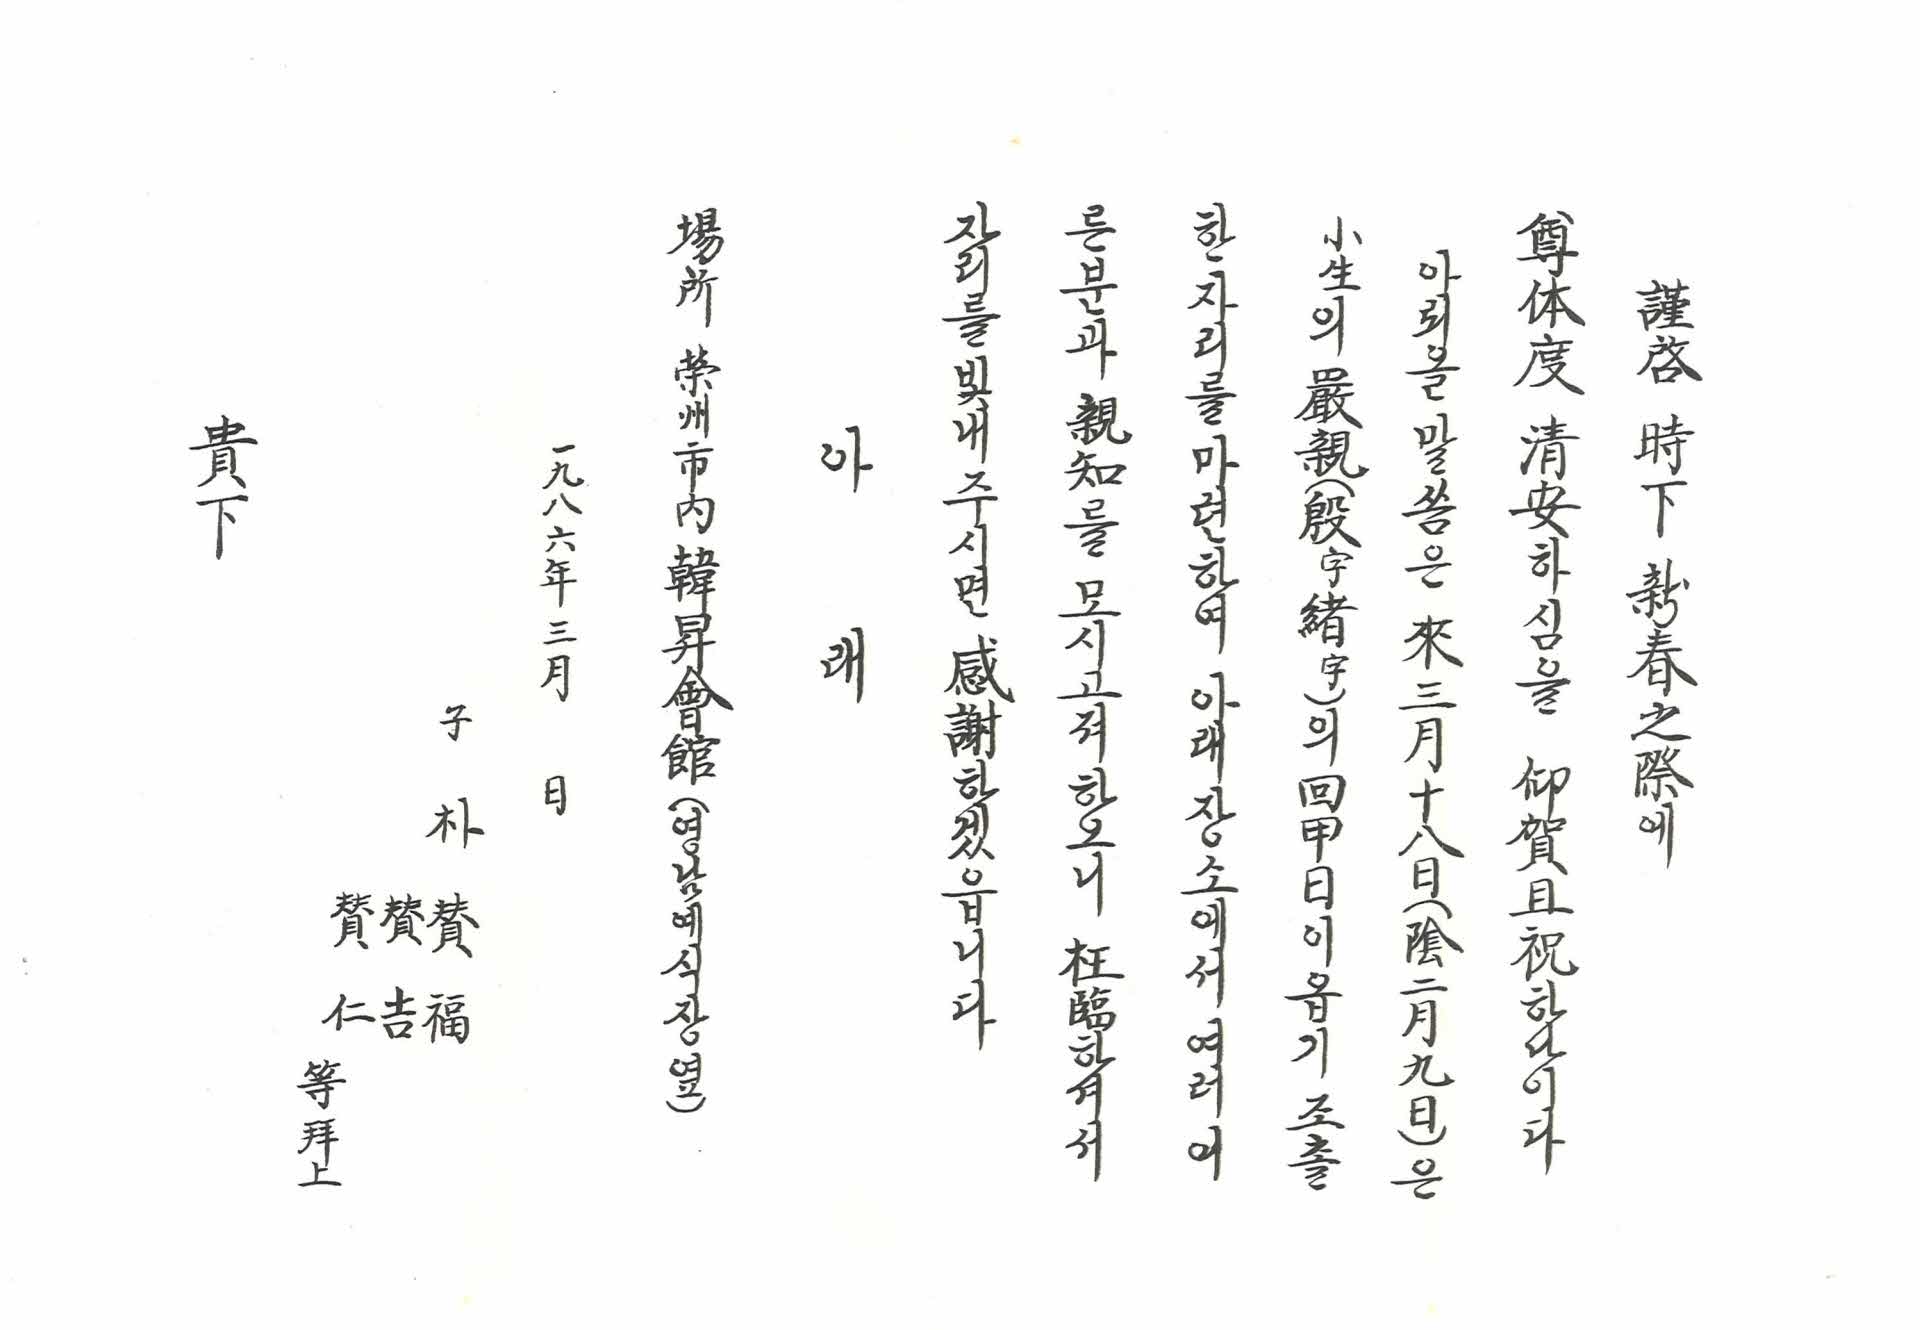 謹啓 時下 新春之際에
尊体度 清安하심을 仰賀且祝하나이다
아뢰올 말씀은 來三月十八日(陰二月九日)은
小生의 嚴親(殷字緖字)의 回甲日이옵기 조촐
한 자리를 마련하여 아래 장소에서 여러 어
른분과 親知를 모시고저 하오니 枉臨하셔서
자리를 빛내 주시면 感謝하겠읍니다
아 래
場所 榮州市內 韓昇會館(영남예식장옆)
一九八六年 三月 日
子 朴 賛福
賛吉
賛仁
等拜上
貴下